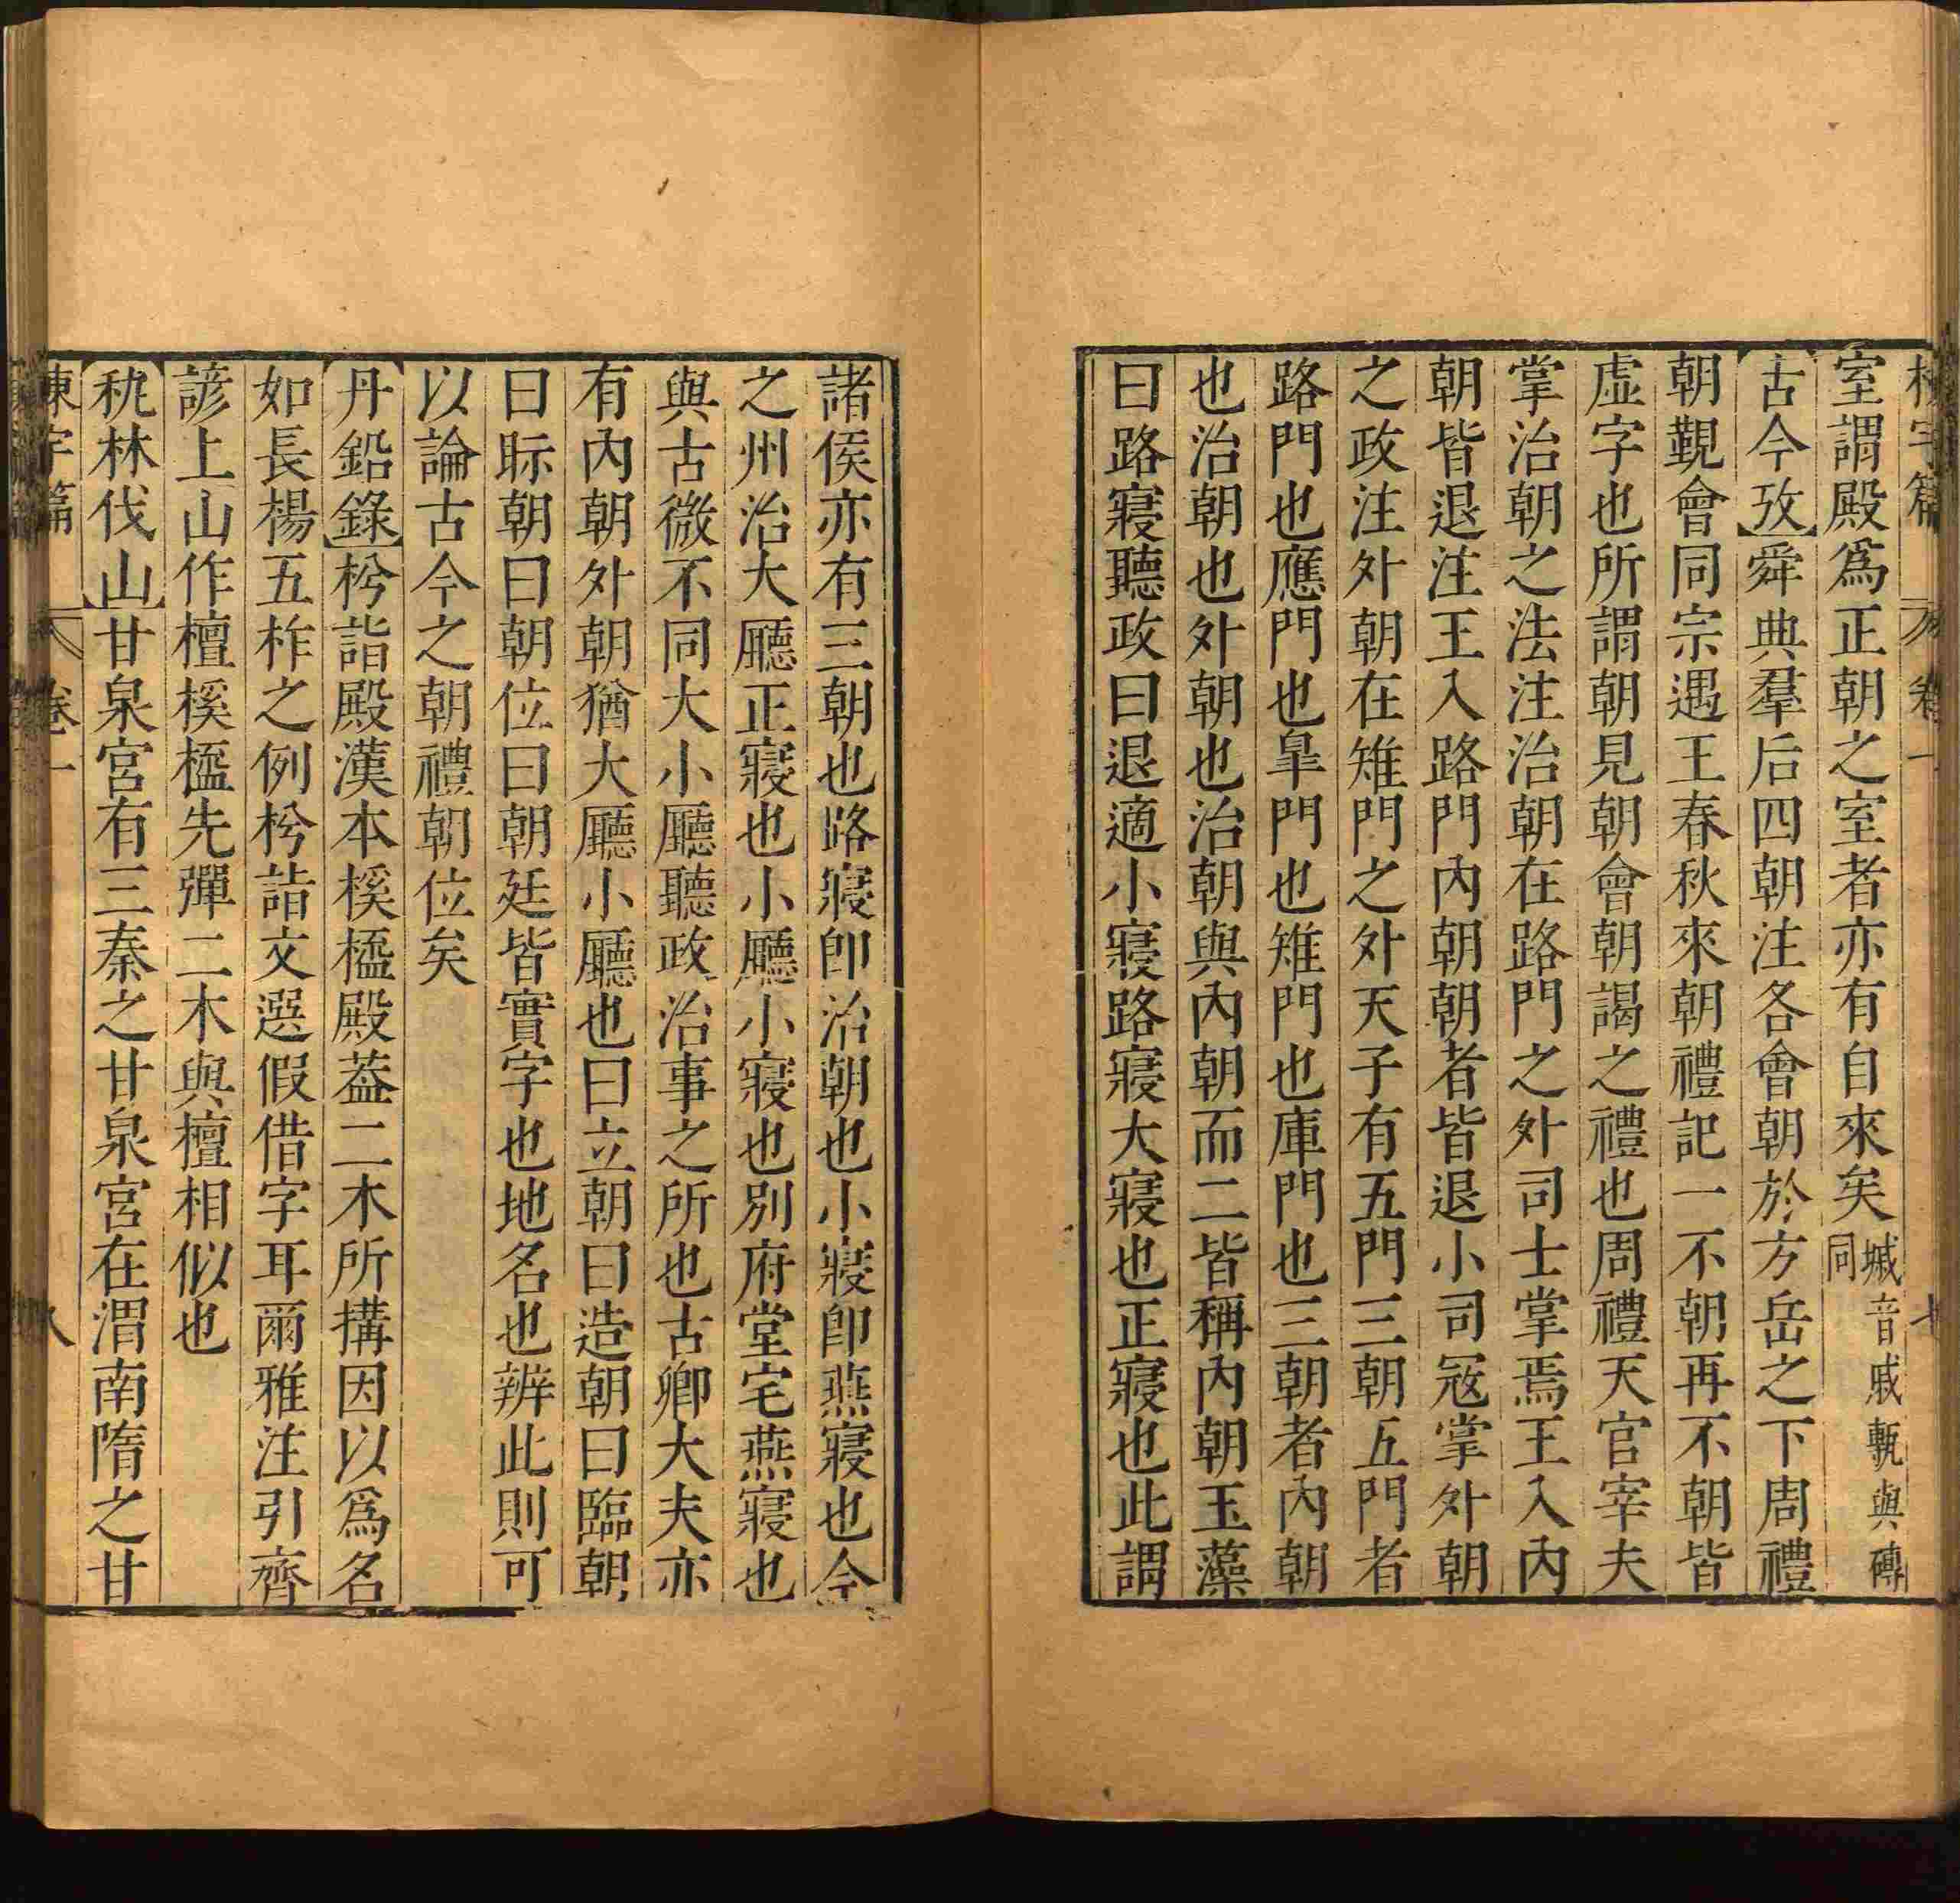 室謂殿爲正朝之室者亦有自來矣墄音戚䡅與磚同
【古今攷】舜典羣后四朝注各會朝於方岳之下周禮
朝覲會同宗遇王春秋來朝禮記一不朝再不朝皆
虛字也所謂朝見朝會朝謁之禮也周禮天官宰夫
掌治朝之法注治朝在路門之外司士掌焉王入內
朝皆退注王入路門內朝朝者皆退小司冦掌外朝
之政注外朝在雉門之外天子有五門三朝五門者
路門也應門也臯門也雉門也庫門也三朝者內朝
也治朝也外朝也治朝與內朝而二皆稱內朝玉藻
曰路寢聽政曰退適小寢路寢大寢也正寢也此謂
諸侯亦有三朝也路寢卽治朝也小寢卽燕寢也今
之州治大廳正寢也小廳小寢也別府堂宅燕寢也
與古微不同大小廳聽政治事之所也古卿大夫亦
有內朝外朝猶大廳小廳也曰立朝曰造朝曰臨朝
曰眎朝曰朝位曰朝廷皆實字也地名也辨此則可
以論古今之朝禮朝位矣
【丹鉛錄】枍詣殿漢本榽橀殿葢二木所搆因以爲名
如長楊五柞之例枍詣文選假借字耳爾雅注引齊
諺上山作檀榽橀先彈二木與檀相似也
【秇林伐山】甘泉宮有三秦之甘泉宮在渭南隋之甘
字篇 卷一 八